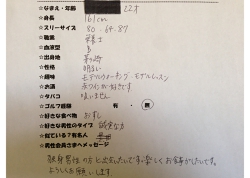 ☆なまえ・年齢 22才
☆身長 161cm
☆スリーサイズ 80・64・87
☆職業
☆血液型
☆出身地
☆性格 明るい
☆趣味 ホテルウォーキング モデルレッスン
☆お酒 赤ワインが好きです
☆タバコ 吸いません
☆ゴルフ経験 有・無
☆好きな食べ物 おすし
☆好きな男性のタイプ 誠実な方
☆似ている?有名人
☆男性会員さまへメッセージ
独身男性の方と出会いたいです。楽しくお食事がしたいです。
よろしくお願いします。